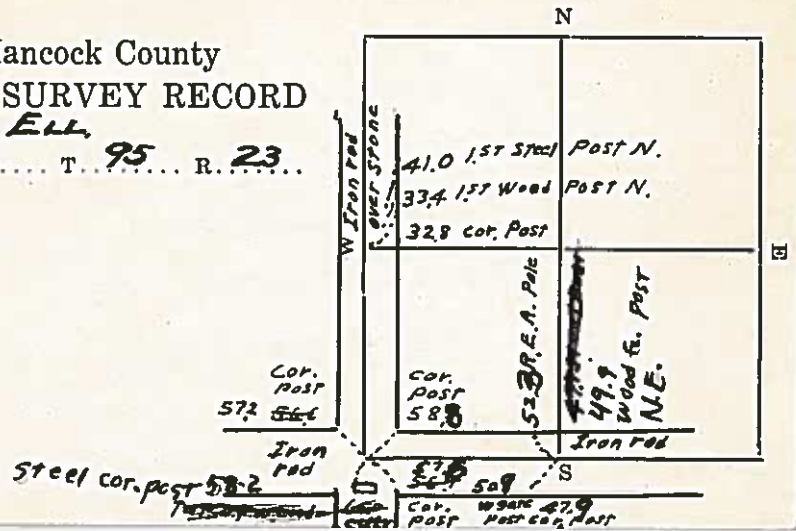 N
Hancock County
SURVEY RECORD
ELL.
T. 95 R. 23
W Iron rod
over Stone
41.0 1.ST Steel Post N.
33.4 1.ST Wood Post N.
32.8 cor. Post
E
R.E.A. Pole
49.9
Wood fe. Post
N.E.
Cor.
Post
57.2 56.6
cor.
Post
58.8
Iron
rod
Iron rod
S
Steel cor. post 58.2
50.9
cor.
post
47.9
Post cor. post